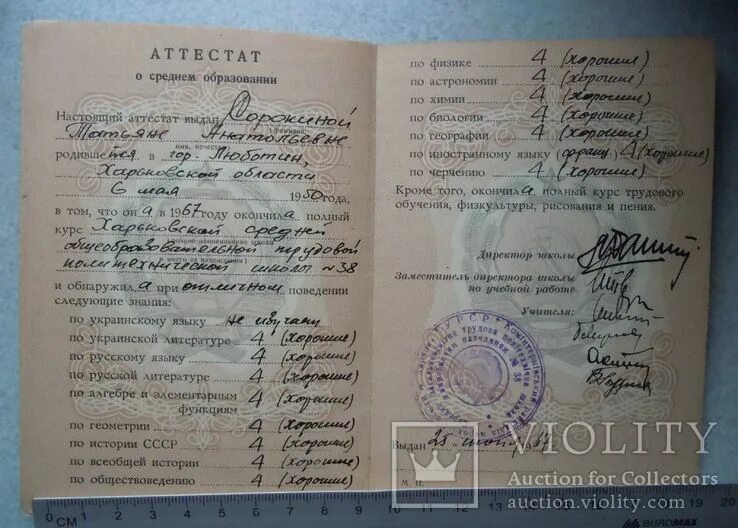 АТТЕСТАТ
о среднем образовании
Настоящий аттестат выдан Сорокиной
(фамилия,
Татьяне Анатольевне
имя, отчество)
родившейся в гор. Люботин,
Харьковской области
6 мая 1950 года,
в том, что она в 1967 году окончила полный
курс Харьковской средней
общеобразовательной трудовой
политехнической школы № 38
и обнаружила при отличном поведении
следующие знания:
по украинскому языку не изучала
по украинской литературе 4 (хорошие)
по русскому языку 4 (хорошие)
по русской литературе 4 (хорошие)
по алгебре и элементарным
функциям 4 (хорошие)
по геометрии 4 (хорошие)
по истории СССР 4 (хорошие)
по всеобщей истории 4 (хорошие)
по обществоведению 4 (хорошие)
по физике 4 (хорошие)
по астрономии 4 (хорошие)
по химии 4 (хорошие)
по биологии 4 (хорошие)
по географии 4 (хорошие)
по иностранному языку (франц.) 4 (хорошие)
по черчению 4 (хорошие)
Кроме того, окончила полный курс трудового
обучения, физкультуры, рисования и пения.
Директор школы
Заместитель директора школы
по учебной работе
Учителя:
Выдан 25 1967 г.
м. п.
VIOLITY
Auction for Collectors
auction.violity.com
0 1 2 3 4 5 6 7 8 9 10 11 12 13 14 15 16 17 18 19 20
CM
BUROMAX